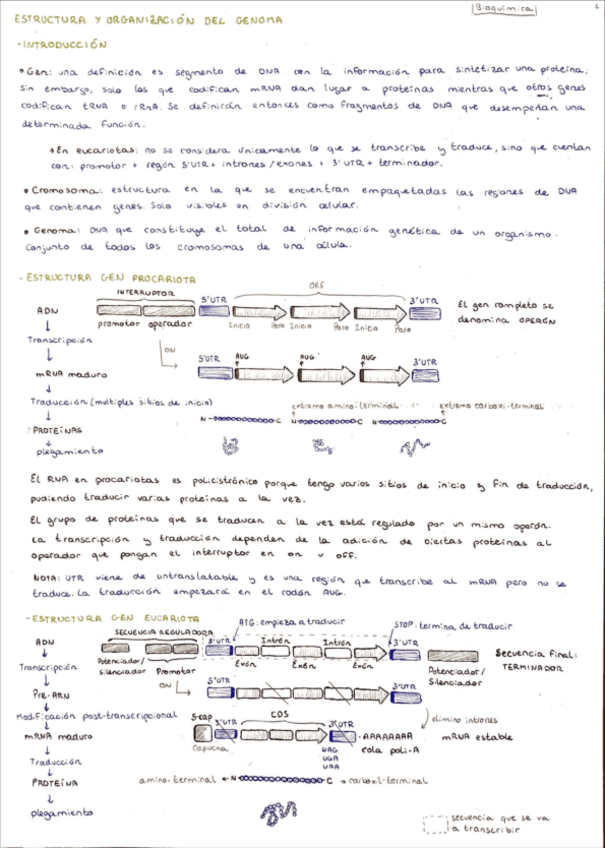 Bioquímica
1
ESTRUCTURA Y ORGANIZACIÓN DEL GENOMA
-INTRODUCCIÓN
• Gen: una definición es segmento de DNA con la información para sintetizar una proteína;
sin embargo, solo los que codifican mRNA dan lugar a proteínas mientras que otros genes
codifican tRNA o rRNA. Se definirán entonces como fragmentos de DNA que desempeñan una
determinada función.
→En eucariotas: no se considera únicamente lo que se transcribe y traduce, sino que cuentan
con: promotor + región 5'UTR + intrones/exones + 3'UTR + terminador.
• Cromosoma: estructura en la que se encuentran empaquetadas las regiones de DNA
que contienen genes. Solo visibles en división celular.
• Genoma: DNA que constituye el total de información genética de un organismo.
Conjunto de todos los cromosomas de una célula.
- ESTRUCTURA GEN PROCARIOTA
INTERRUPTOR
ORF
5'UTR
3'UTR
ADN
promotor operador
Inicio Paro Inicio Paro Inicio Paro
El gen completo se
denomina OPERÓN
Transcripción
ON
5'UTR
AUG
AUG
AUG
3'UTR
mRNA maduro
Traducción (multiples sitios de inicio)
extremo amino-terminal
extremo carboxi-terminal
N C N C N C
PROTEÍNAS
plegamiento
El RNA en procariotas es policistrónico porque tengo varios sitios de inicio y fin de traducción,
pudiendo traducir varias proteínas a la vez.
El grupo de proteínas que se traducen a la vez está regulado por un mismo operón.
La transcripción y traducción dependen de la adición de ciertas proteínas al
operador que pongan el interruptor en on u off.
NOTA: UTR viene de untranslatable y es una región que transcribe al mRNA pero no se
traduce. La traducción empezará en el codón AUG.
- ESTRUCTURA GEN EUCARIOTA
ATG: empieza a traducir
STOP: termina de traducir
SECUENCIA REGULADORA
5'UTR
Intrón
Intrón
3'UTR
ADN
Potenciador/
silenciador
Promotor
Exón
Exón
Exón
Potenciador/
Silenciador
Secuencia final:
TERMINADOR
Transcripción
ON
5'UTR
3'UTR
Pre-ARN
Modificación post-transcripcional
elimino intrones
5-cap
5'UTR
CDS
3'UTR
mRNA maduro
Capucha
-AAAAAAAA
cola poli-A
mRNA estable
UAG
UGA
UAA
Traducción
PROTEÍNA
amino-terminal ← N C → carboxil-terminal
plegamiento
secuencia que se va
a transcribir